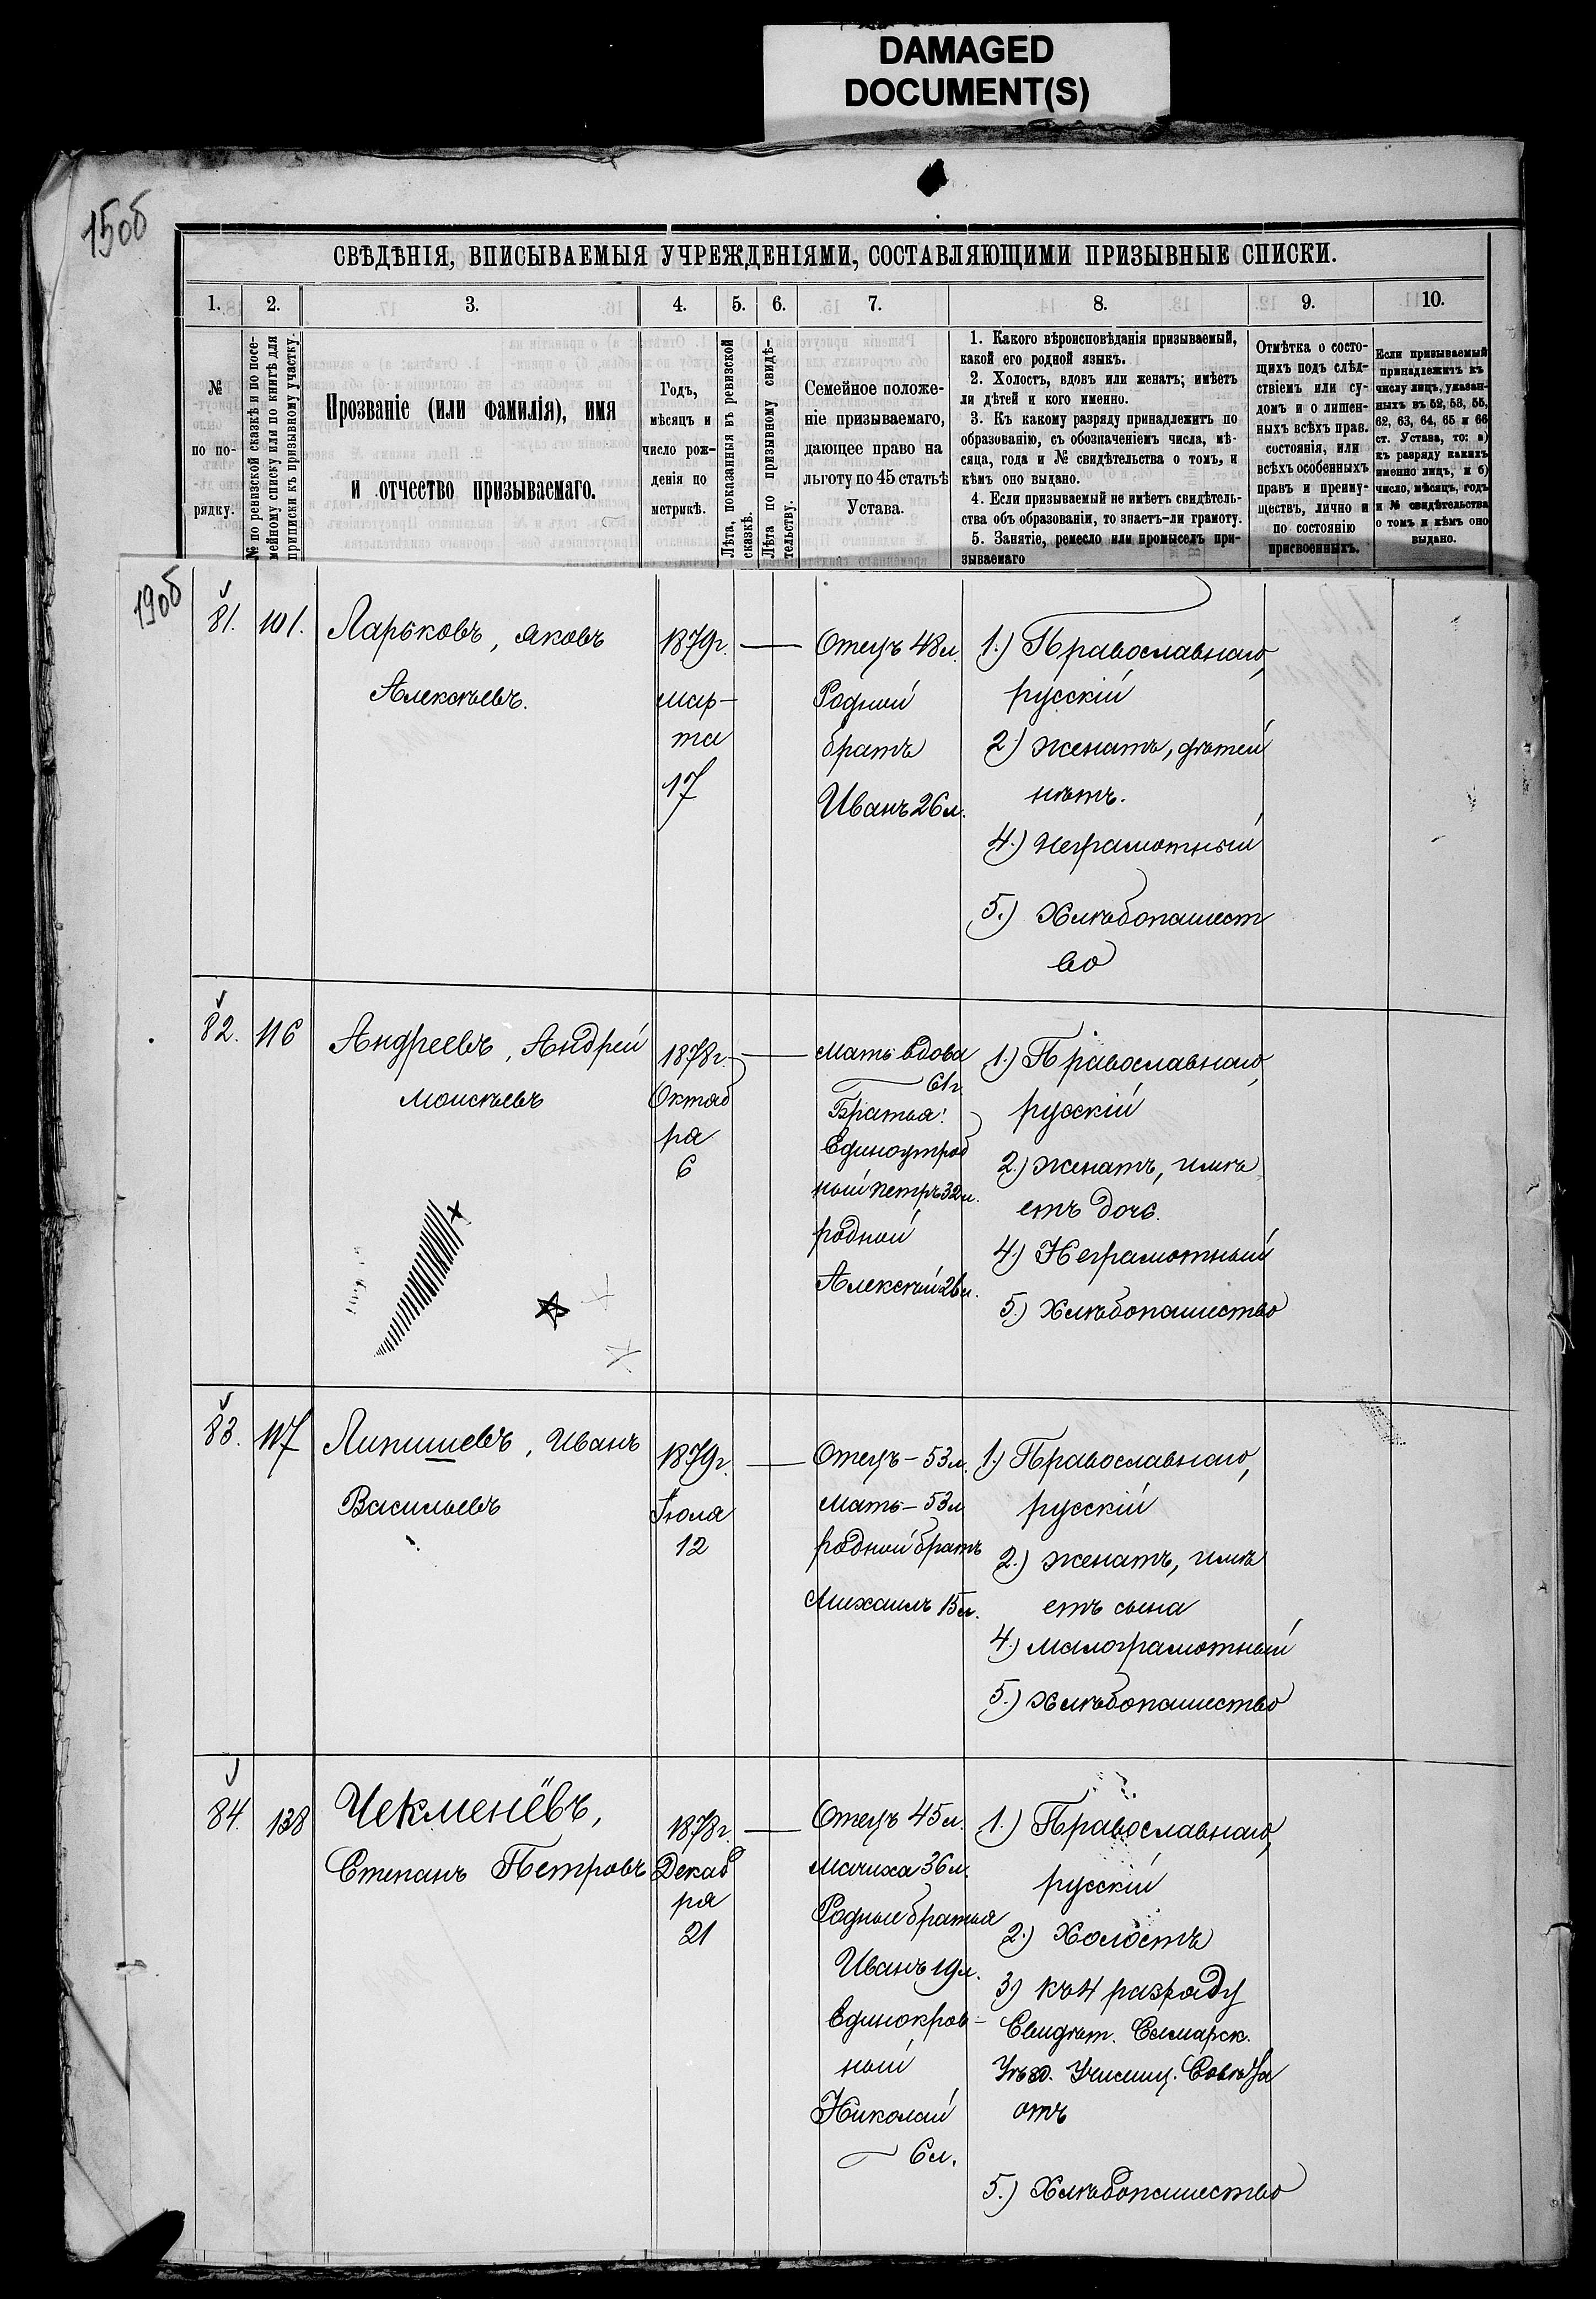 DAMAGED
DOCUMENT(S)
15об
СВѢДѢНІЯ, ВПИСЫВАЕМЫЯ УЧРЕЖДЕНІЯМИ, СОСТАВЛЯЮЩИМИ ПРИЗЫВНЫЕ СПИСКИ.
1. 2. 3. 4. 5. 6. 7. 8. 9. 10.
№
по по-
рядку.
№ по ревизской сказкѣ и по посе-
мейному списку или по книгѣ для
приписки къ призывному участку.
Прозваніе (или фамилія), имя
и отчество призываемаго.
Годъ,
мѣсяцъ и
число рож-
денія по
метрикѣ.
Лѣта, показанныя въ ревизской
сказкѣ.
Лѣта по призывному свидѣ-
тельству.
Семейное положе-
ніе призываемаго,
дающее право на
льготу по 45 статьѣ
Устава.
1. Какого вѣроисповѣданія призываемый,
какой его родной языкъ.
2. Холостъ, вдовъ или женатъ; имѣетъ
ли дѣтей и кого именно.
3. Къ какому разряду принадлежитъ по
образованію, съ обозначеніемъ числа, мѣ-
сяца, года и № свидѣтельства о томъ, и
кѣмъ оно выдано.
4. Если призываемый не имѣетъ свидѣтель-
ства объ образованіи, то знаетъ-ли грамоту.
5. Занятіе, ремесло или промыселъ при-
зываемаго
Отмѣтка о состо-
щихъ подъ слѣд-
ствіемъ или су-
домъ и о лишен-
ныхъ всѣхъ прав.
состоянія, или
всѣхъ особенныхъ
правъ и преиму-
ществъ, лично и
по состоянію
присвоенныхъ.
Если призываемый
принадлежитъ къ
числу лицъ, указан-
ныхъ въ 52, 53, 55,
62, 63, 64, 65 и 66
ст. Устава, то: а)
къ разряду какихъ
именно лицъ, и б)
число, мѣсяцъ, годъ
и № свидѣтельства
о томъ и кѣмъ оно
выдано.
19об
81. 101. Ларьковъ, Яковъ
Алексѣевъ.
1879г.
мар-
та
17
Отецъ 48л.
Родной
братъ
Иванъ 26л.
1.) Православнаго,
русскій
2.) женатъ, дѣтей
нѣтъ.
4.) Неграмотный
5.) Хлѣбопашест
во
82. 116 Андреевъ, Андрей
Моисѣевъ
1878г.
Октяб
ря
6
Мать вдова
61г.
Братья:
Единоутроб
ный Петръ 32л.
родной
Алексѣй 26л.
1.) Православнаго,
русскій
2.) женатъ, имѣ
етъ дочь.
4.) Неграмотный
5.) Хлѣбопашество
83. 117 Липишевъ, Иванъ
Васильевъ
1879г.
Іюля
12
Отецъ - 53л.
Мать - 53л
родной братъ
Михаилъ 15л.
1.) Православнаго,
русскій
2.) женатъ, имѣ
етъ сына
4.) Малограмотный
5.) Хлѣбопашество
84. 138 Чекменёвъ,
Степанъ Петровъ
1878г.
Декаб
ря
21
Отецъ 45л.
Мачиха 36л.
Родные братья
Иванъ 19л.
Единокров-
ный
Николай
6л.
1.) Православнаго,
русскій
2.) Холостъ
3) къ 4 разряду
Свидѣт. Самарск.
Уѣзд. Училищ. Совѣта
отъ
5.) Хлѣбопашество